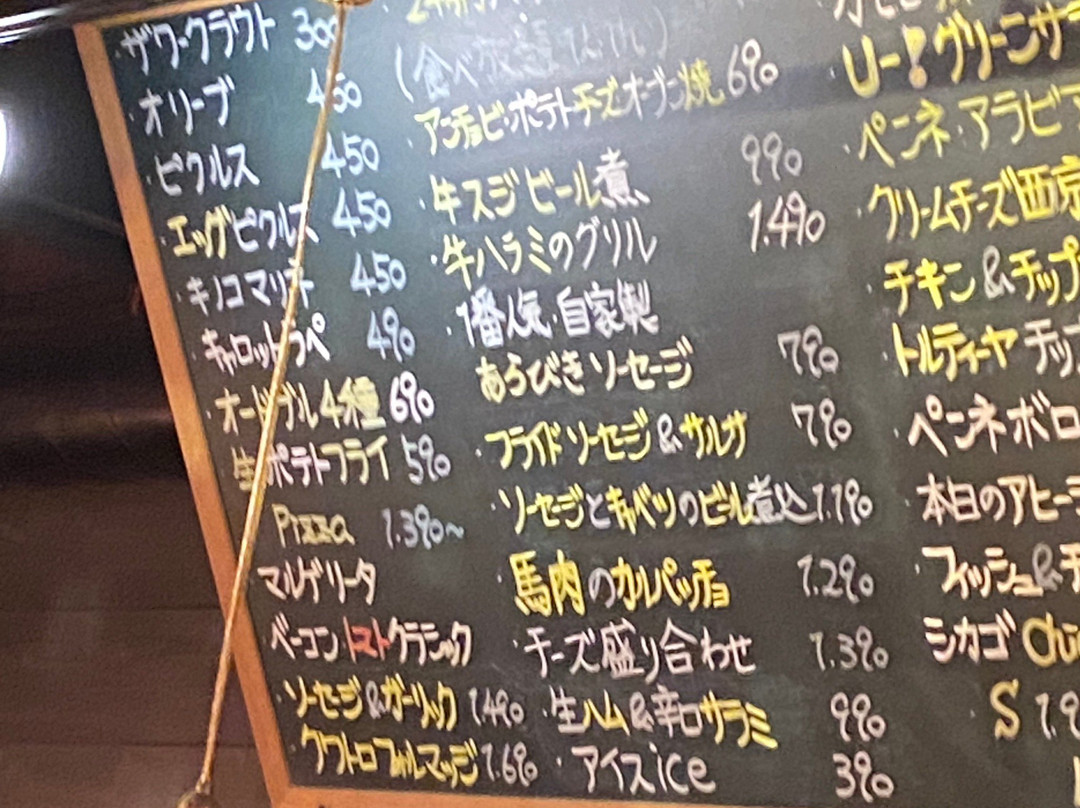 ・ザワークラウト 300
・オリーブ 450
・ピクルス 450
・エッグピクルス 450
・キノコマリネ 450
・キャロットラペ 490
・オードブル4種 690
・生ポテトフライ 590
Pizza 1.390~
マルゲリータ
ベーコントマトクラシック
・ソーセージ&ガーリック 1.490
・クワトロフォルマッジ 1.690
アンチョビ・ポテトチーズオーブン焼 690
・牛スジビール煮 990
・牛ハラミのグリル 1.490
・1番人気・自家製
あらびきソーセージ 790
・フライドソーセージ&サルサ 790
・ソーセージとキャベツのビール煮込 1.190
・馬肉のカルパッチョ 1.290
・チーズ盛り合わせ 1.390
・生ハム&辛口サラミ 990
・アイスice 390
U-!グリーンサラ
・ペンネ・アラビア
・クリームチーズ西京
チキン&チップ
・トルティーヤチップ
・ペンネボロ
・本日のアヒー
・フィッシュ&チ
シカゴ
・S